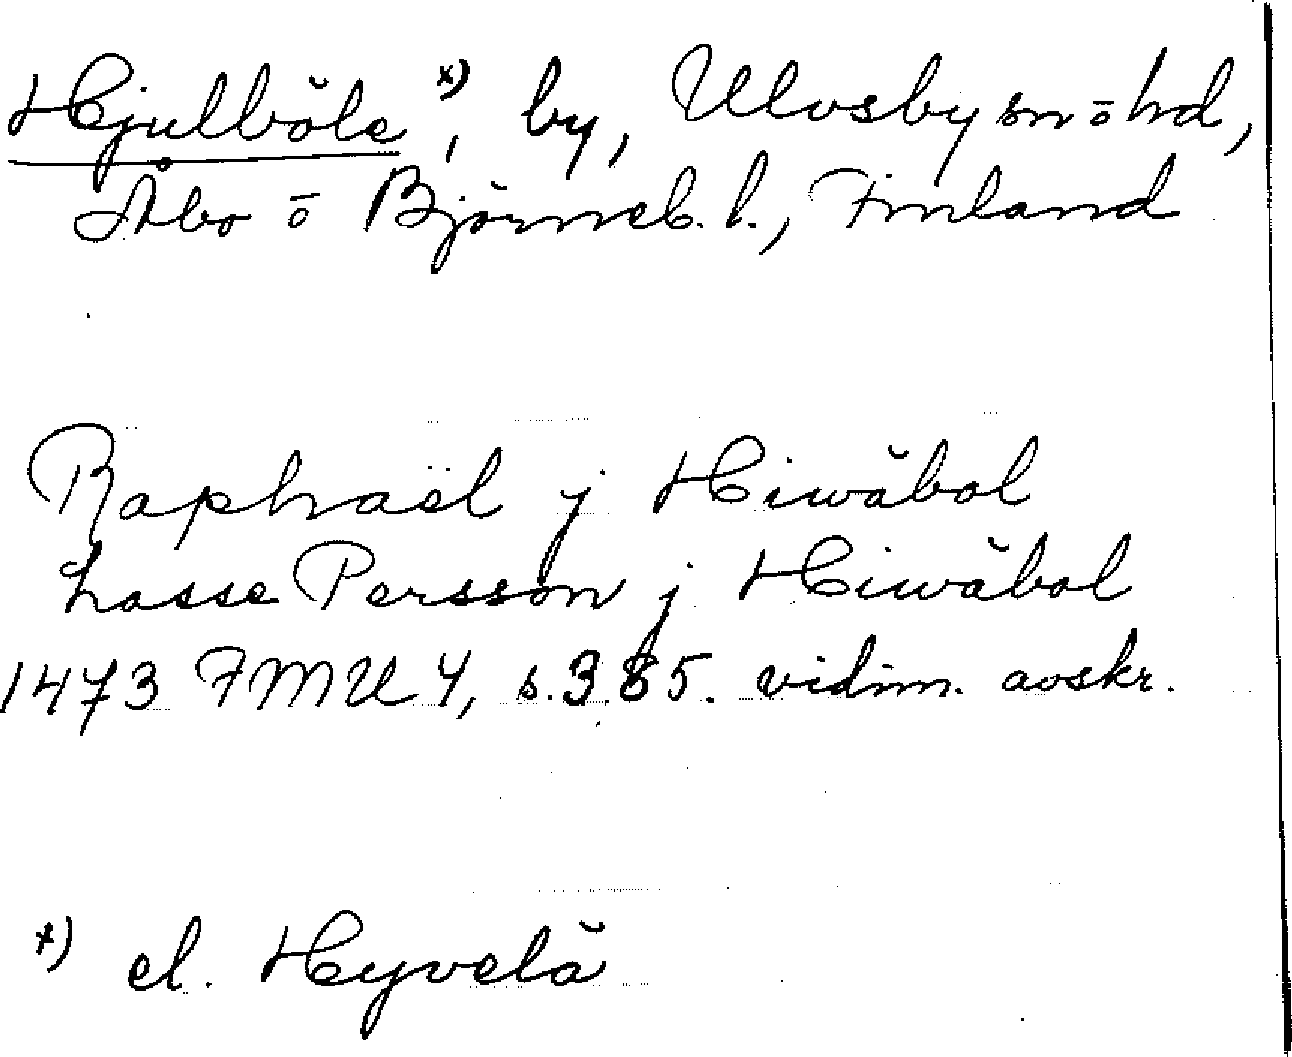 Hjulböle x), by, Ulvsby sn ō hd,
Åbo ō Björneb. l., Finland
Raphaël j Hiwäbol
Lasse Persson j Hiwäbol
1473 FMU 4, s. 385. vidim. avskr.
x) el. Hyvelä